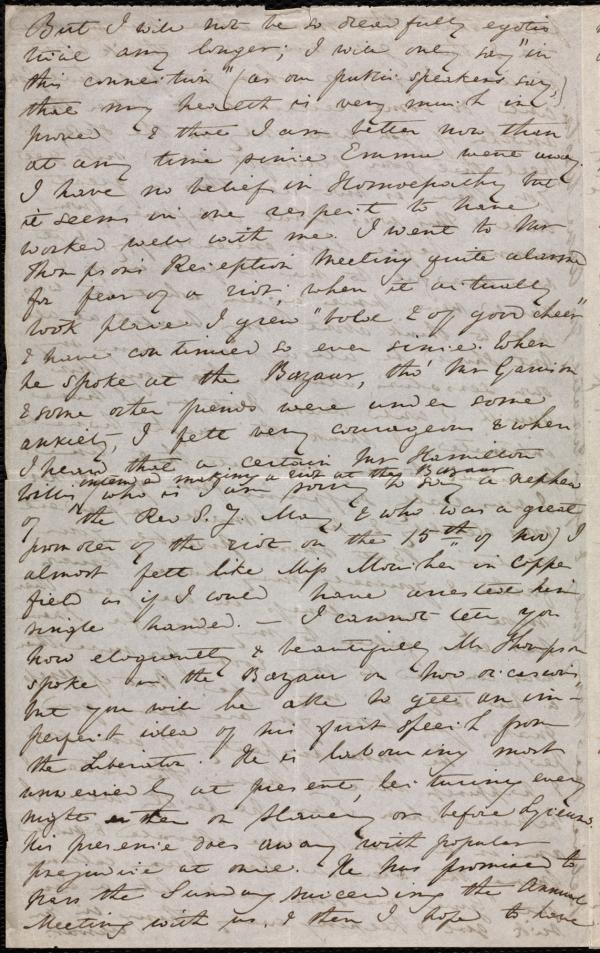 But I will not be so dreadfully egotis
tical any longer; I will only say "in
this connection" (as our public speakers say,)
that my health is very much im
proved & that I am better now than
at any time since Emma went away.
I have no belief in Homoepathy but
it seems in one respect to have
worked well with me. I went to Mr
Thompson's Reception Meeting quite alarmed
for fear of a riot; when it actually
took place I grew "bold & of good cheer"
& have continued so ever since. When
he spoke at the Bazaar, tho' Mr Garrison
& some other friends were under some
anxiety, I felt very courageous & when
I heard that a certain Mr Hamilton
Willis intended making a riot at the Bazaar
(who is I am sorry to say a nephew
of the Rev S. J. May, & who was a great
promoter of the riot on the 15th of Nov) I
almost felt like Miss Moucher in Copper
field as if I could have arrested him
single handed. — I cannot tell you
how eloquently & beautifully Mr Thompson
spoke in the Bazaar on two occasions,
but you will be able to get an im-
perfect idea of his first speech from
the Liberator. He is labouring most
unweariedly at present, lecturing every
night either on Slavery or before Lyceums.
his presence does away with popular
prejudice at once. He has promised to
pass the Sunday succeeding the Annual
Meeting with us, & then I hope to have